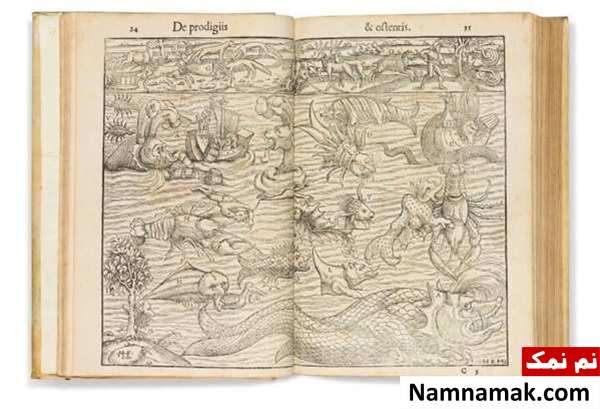 24 De prodigiis & ostentis. 35
C 3
نم نمک
Namnamak.com